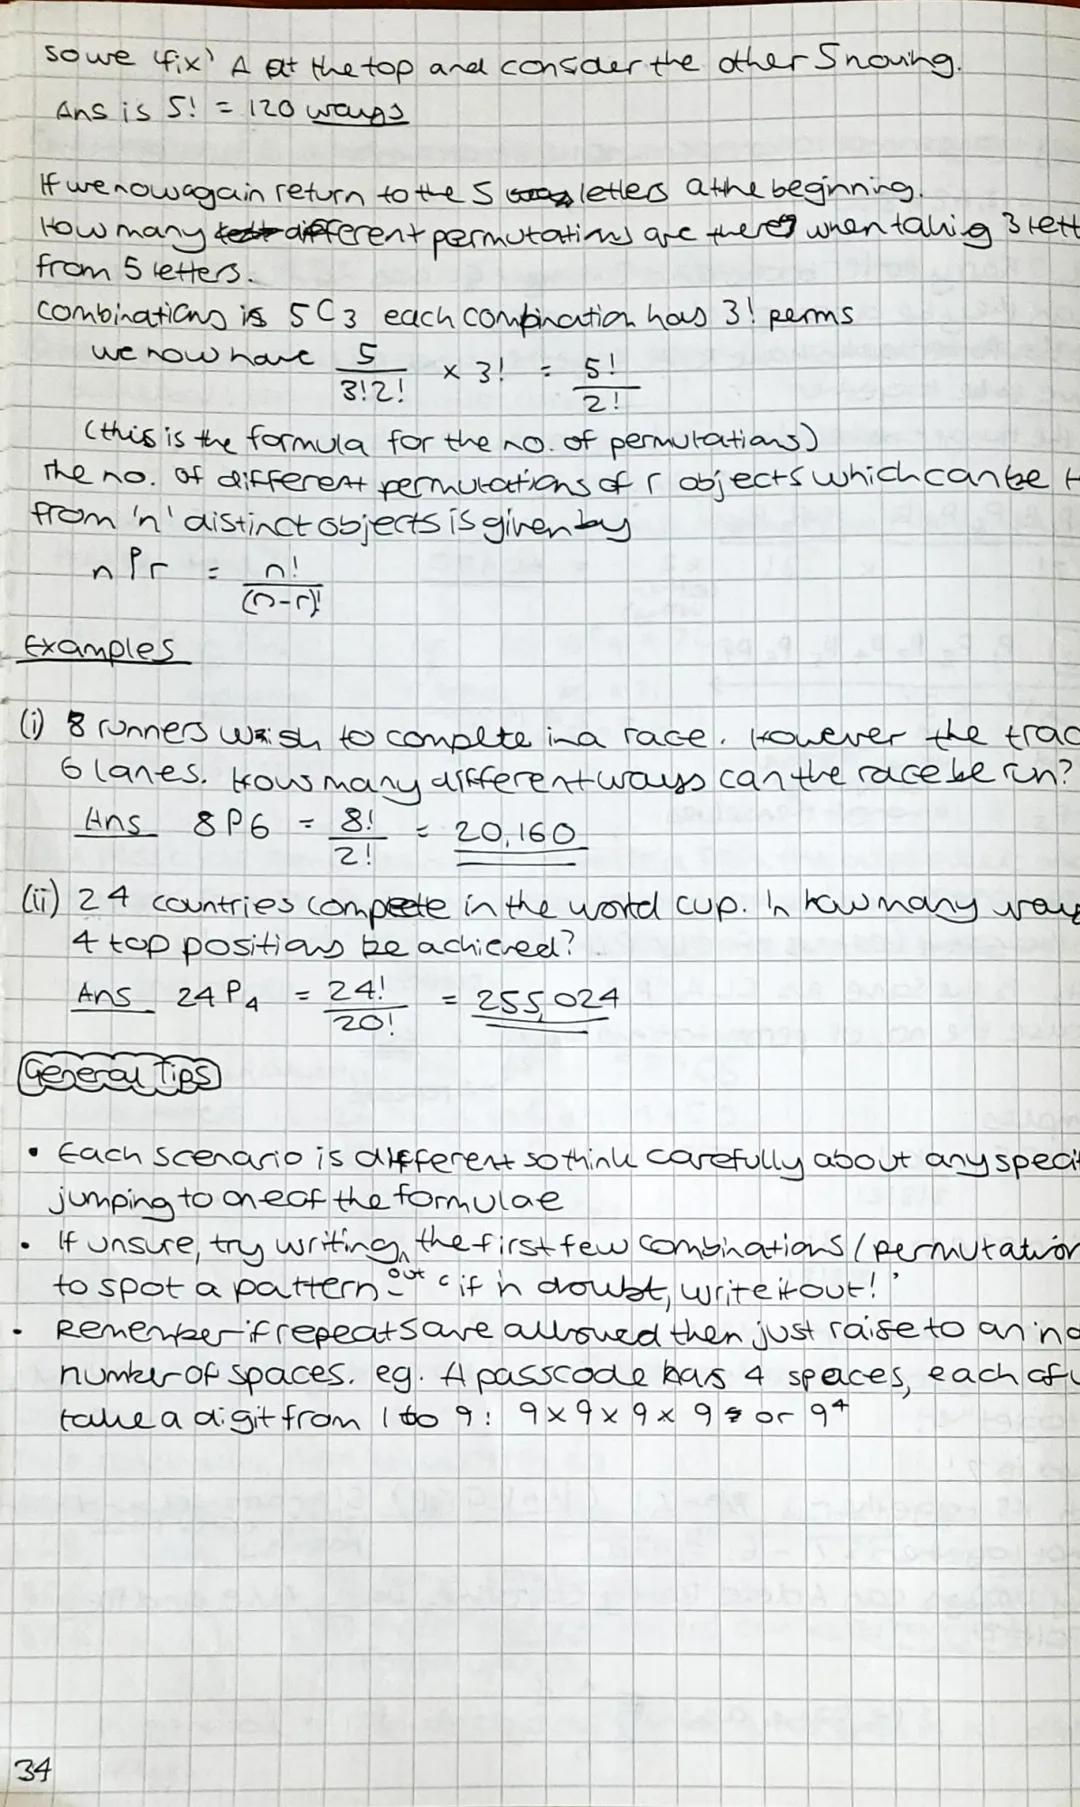 so we 'fix' A at the top and consider the other 5 moving.
Ans is 5! = 120 ways
If we now again return to the 5 letters at the beginning.
How many different permutations are there when taking 3 lett
from 5 letters.
combinations is 5C3 each combination has 3! perms
we now have 5/3!2! × 3! = 5!/2!
(this is the formula for the no. of permutations)
The no. of different permutations of r objects which can be t
from 'n' distinct objects is given by
nPr = n!/(n-r)!
Examples
(i) 8 runners wish to complete in a race. However the trac
6 lanes. How many different ways can the race be run?
Ans 8P6 = 8!/2! = 20,160
(ii) 24 countries compete in the world cup. In how many way
4 top positions be achieved?
Ans 24P4 = 24!/20! = 255,024
General Tips
• Each scenario is different so think carefully about any specif
jumping to one of the formulae
• If unsure, try writing out the first few combinations / permutation
to spot a pattern - 'if in doubt, write it out!'
• Remember if repeats are allowed then just raise to an ind
number of spaces. eg. A passcode has 4 spaces, each of w
take a digit from 1 to 9: 9×9×9×9 or 9⁴
34